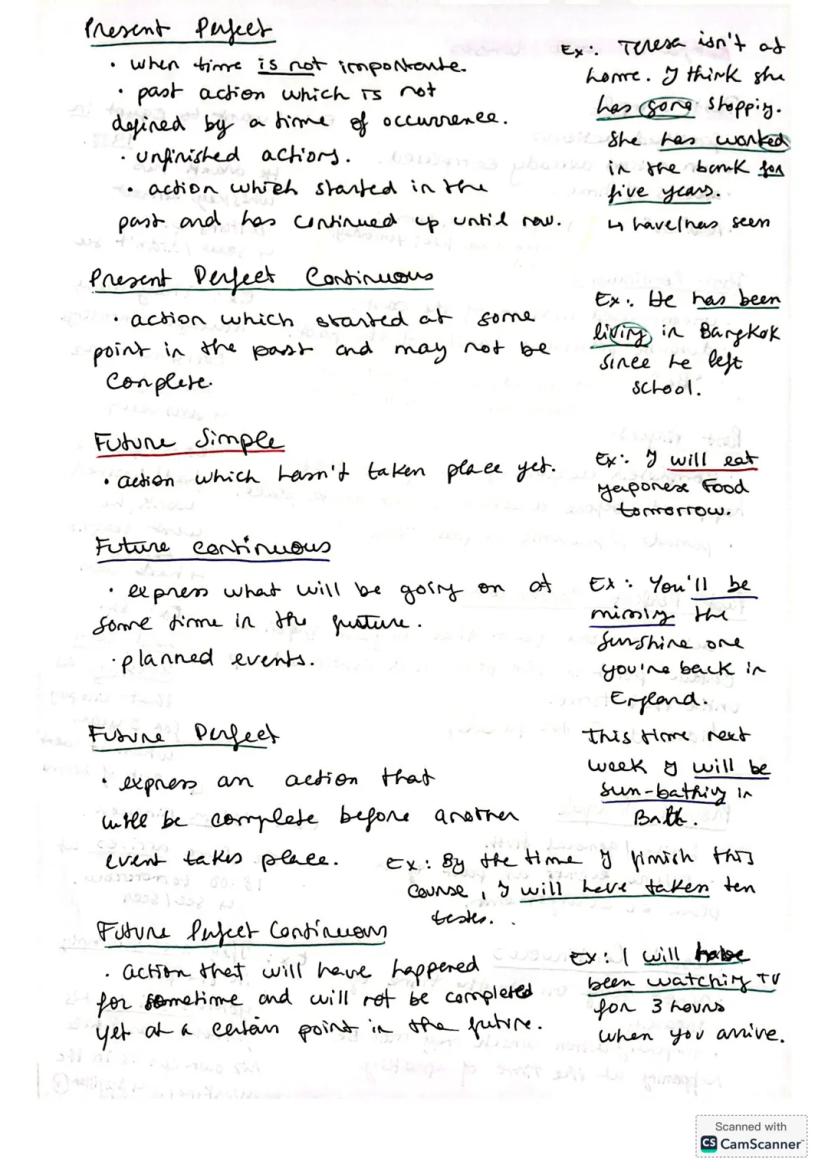 Present Perfect
• when time is not importante.
• past action which is not
defined by a time of occurrence.
• unfinished actions.
• action which started in the
past and has continued up until now.
Ex: Teresa isn't at
home. I think she
has gone shoppig.
She has worked
in the bank for
five years.
↳ have/has seen
Present Perfect Continuous
• action which started at some
point in the past and may not be
complete.
Ex: He has been
living in Bangkok
since he left
school.
Future Simple
• action which hasn't taken place yet.
Ex: I will eat
yaponese food
tomorrow.
Future continuous
• express what will be going on at
some time in the future.
• planned events.
Ex: You'll be
missing the
sunshine one
you're back in
England.
This time next
week I will be
sun-bathing in
Future Perfect
• express an action that
will be complete before another
event takes place.
Ex: By the time I finish this
course, I will have taken ten
tests.
Future Perfect Continuous
• action that will have happened
for sometime and will not be completed
yet at a certain point in the future.
Ex: I will have
been watching TV
for 3 hours
when you arrive.
Scanned with
CS CamScanner